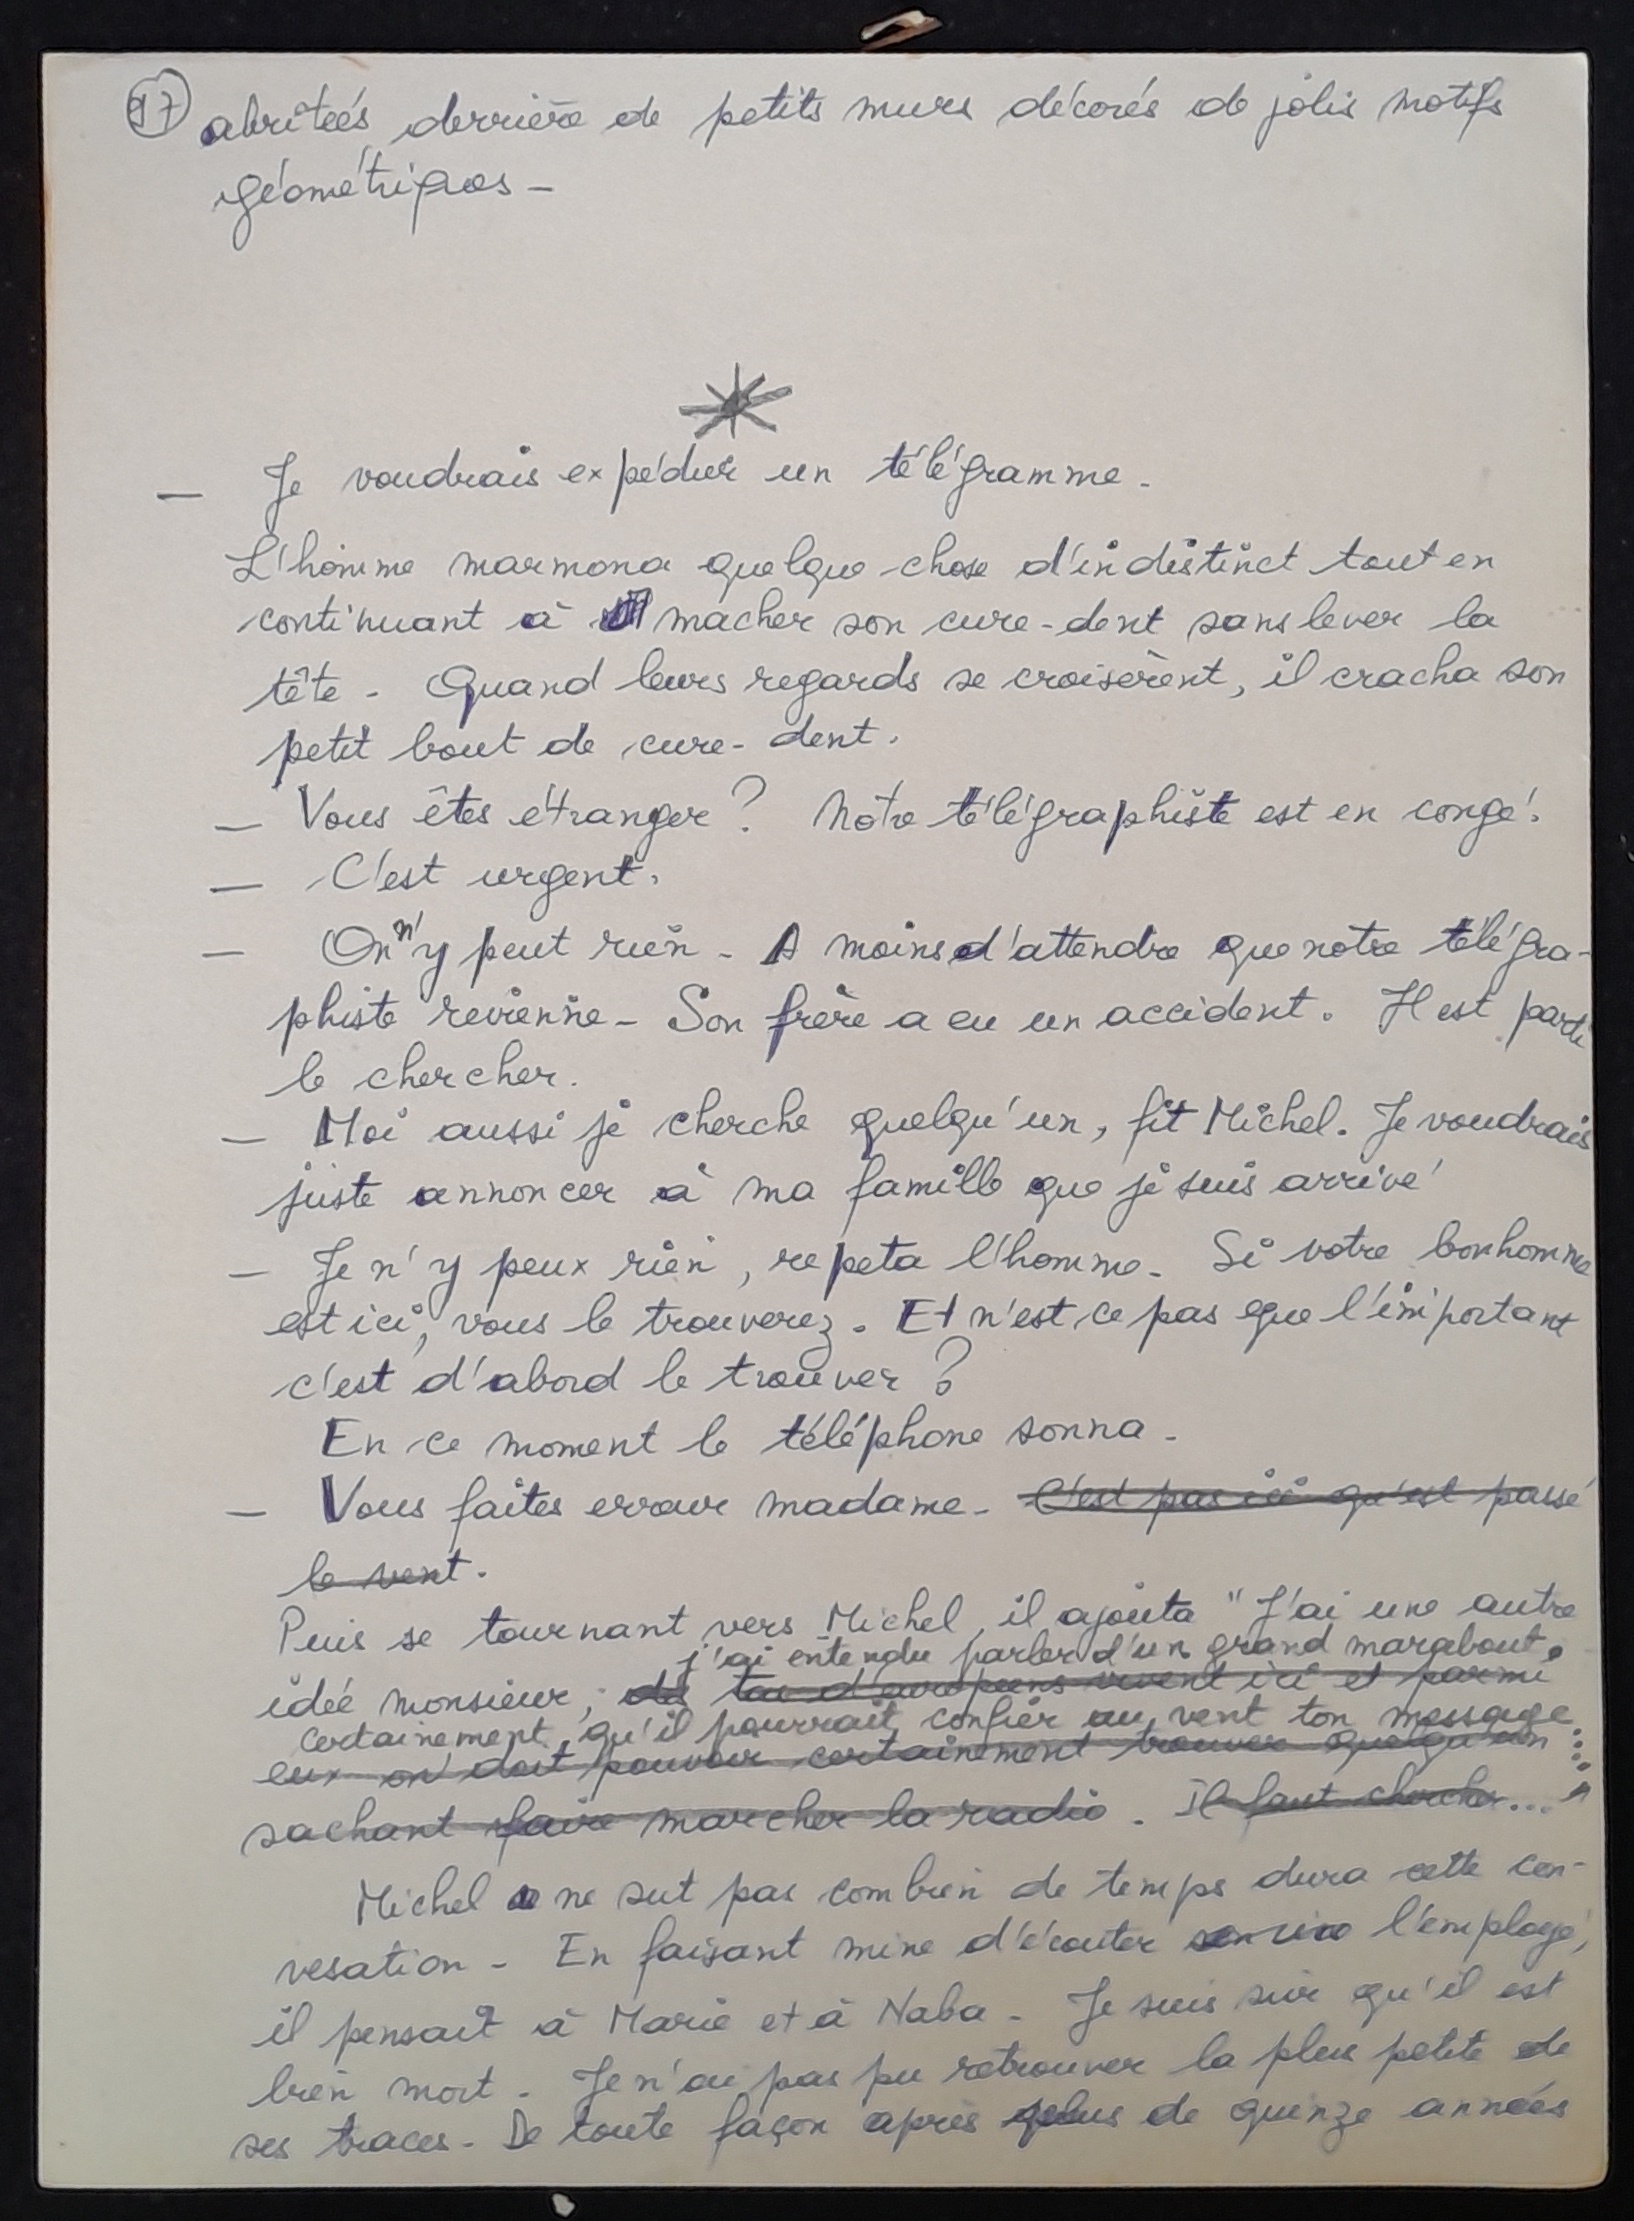 97 abritées derrière de petits murs décorés de jolis motifs
géométriques -
— Je voudrais expédier un télégramme.
L'homme marmona quelque chose d'indistinct tout en
continuant à macher son cure-dent sans lever la
tête - Quand leurs regards se croisèrent, il cracha son
petit bout de cure-dent.
— Vous êtes étranger ? Notre télégraphiste est en congé.
— C'est urgent.
— On n'y peut rien - A moins d'attendre que notre télégra-
phiste revienne - Son frère a eu un accident. Il est parti
le chercher.
— Moi aussi je cherche quelqu'un, fit Michel. Je voudrais
juste annoncer à ma famille que je suis arrivé
— Je n'y peux rien, repeta l'homme. Si votre bonhomme
est ici, vous le trouverez. Et n'est ce pas que l'important
c'est d'abord le trouver ?
En ce moment le téléphone sonna -
— Vous faites erreur madame - C'est pas ici qu'est passé
le vent.
Puis se tournant vers Michel, il ajouta "J'ai une autre
j'ai entendu parler d'un grand marabout.
idée monsieur, d'européens vivent ici et parmi
certainement qu'il pourrait confier au vent ton message...."
eux on doit pouvoir certainement trouver quelqu'un
sachant faire marcher la radio. Il faut chercher...
Michel ne sut pas combien de temps dura cette con-
vesation - En faisant mine d'écouter l'employé,
il pensait à Marie et à Naba - Je suis sûr qu'il est
bien mort - Je n'ai pas pu retrouver la plus petite de
ses traces - De toute façon après plus de quinze années